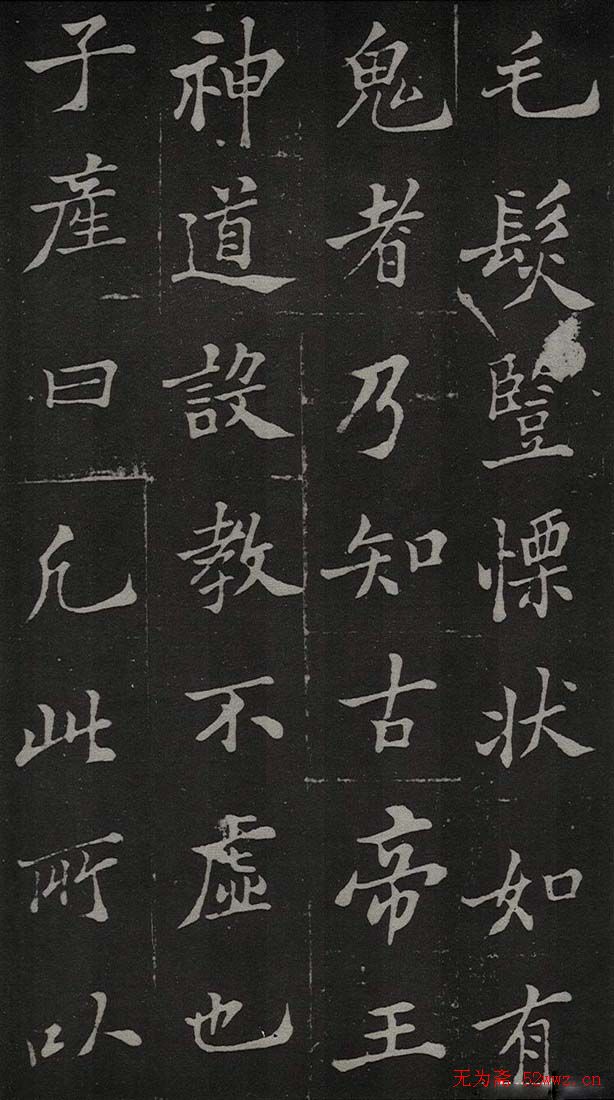 毛髮豎慄状如有
鬼者乃知古帝王
神道設教不虛也
子產曰凡此所以
无为斋 52mwz.cn